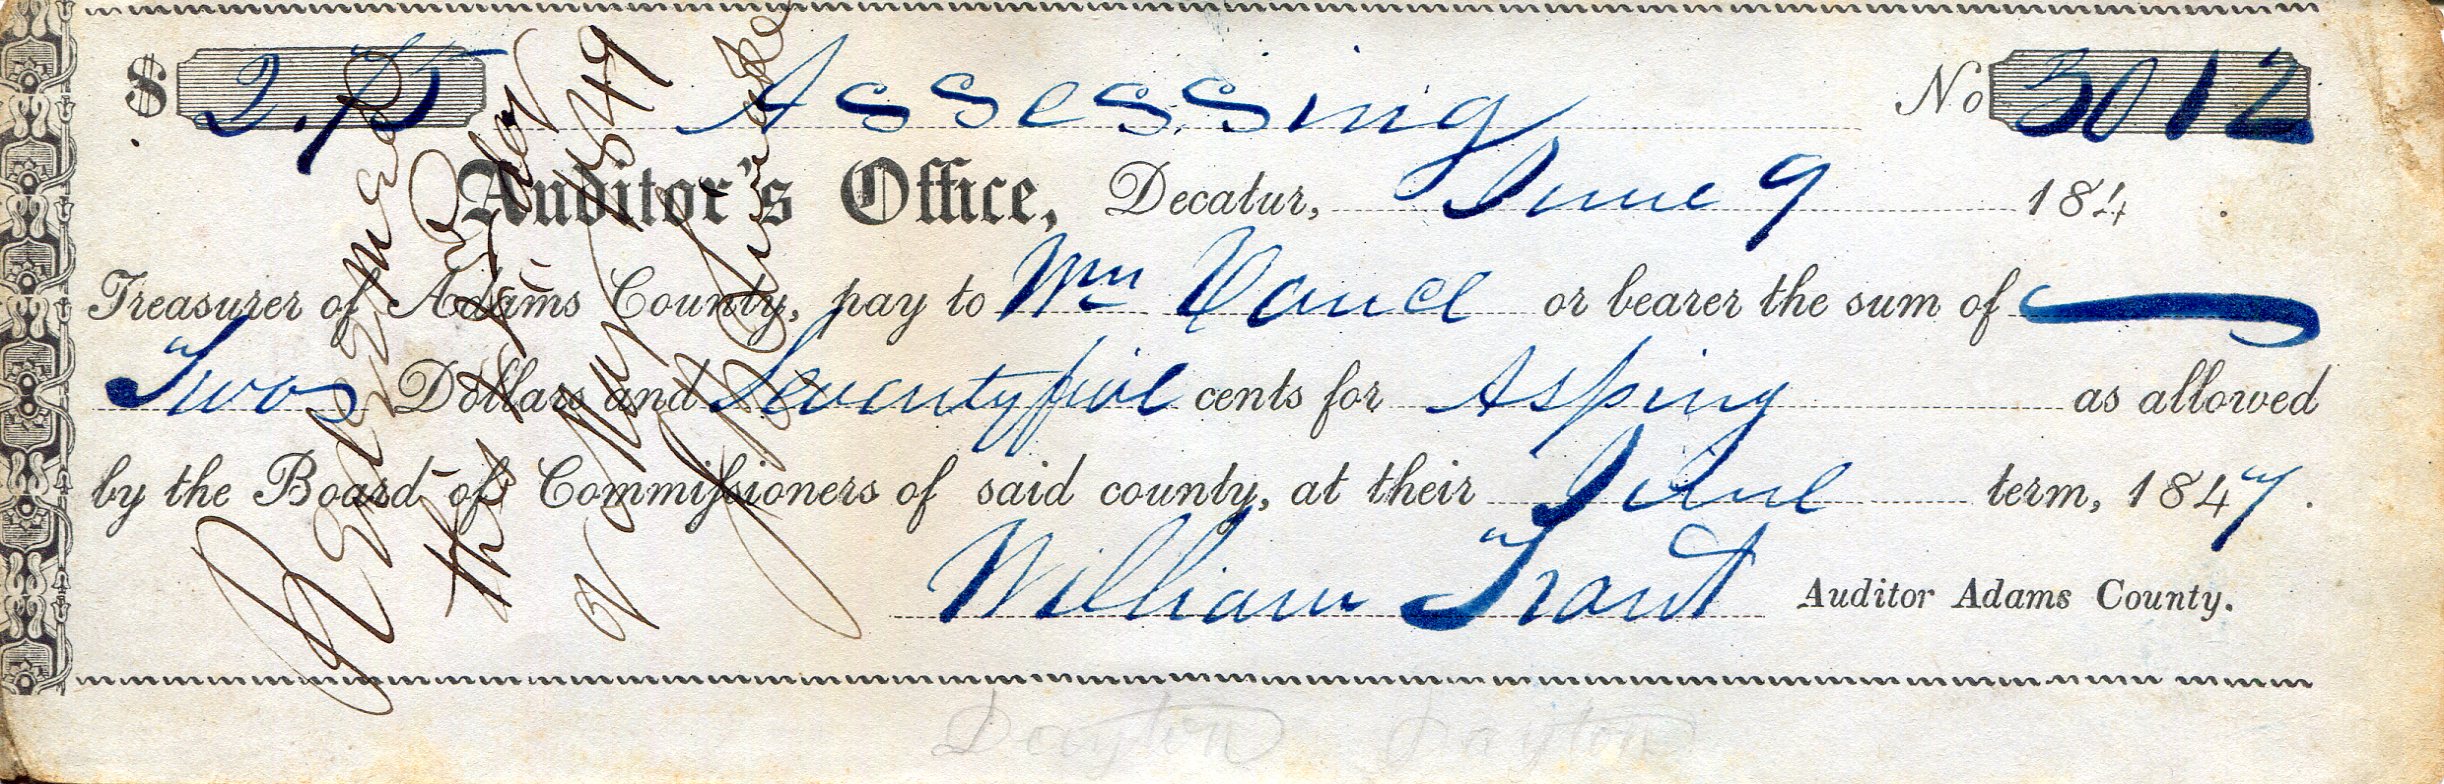 $ 2.75 Assessing No 3012
Auditor's Office, Decatur, June 9 184 .
Treasurer of Adams County, pay to Wm Vance or bearer the sum of
Two Dollars and Seventyfive cents for Assessing as allowed
by the Board of Commissioners of said county, at their June term, 1847.
William Trout Auditor Adams County.
Redeemed
this
of May 1849
Dayton Dayton